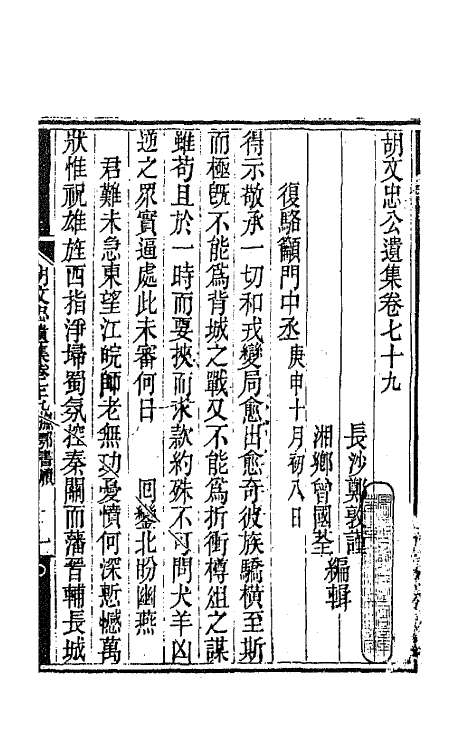 胡文忠公遺集卷七十九
長沙鄭敦謹
湘鄉曾國荃
編輯
復駱籲門中丞庚申十月初八日
得示敬承一切和戎變局愈出愈奇彼族驕橫至斯
而極旣不能爲背城之戰又不能爲折衝樽俎之謀
雖苟且於一時而要挾而求款約殊不可問犬羊凶
逆之眾實逼處此未審何日 回鑾北盼幽燕
君難未急東望江皖師老無功憂憤何深慙憾萬
狀惟祝雄旌西指淨埽蜀氛控秦關而藩晉輔長城
胡文忠遺集卷七十九 撫鄂書牘 一